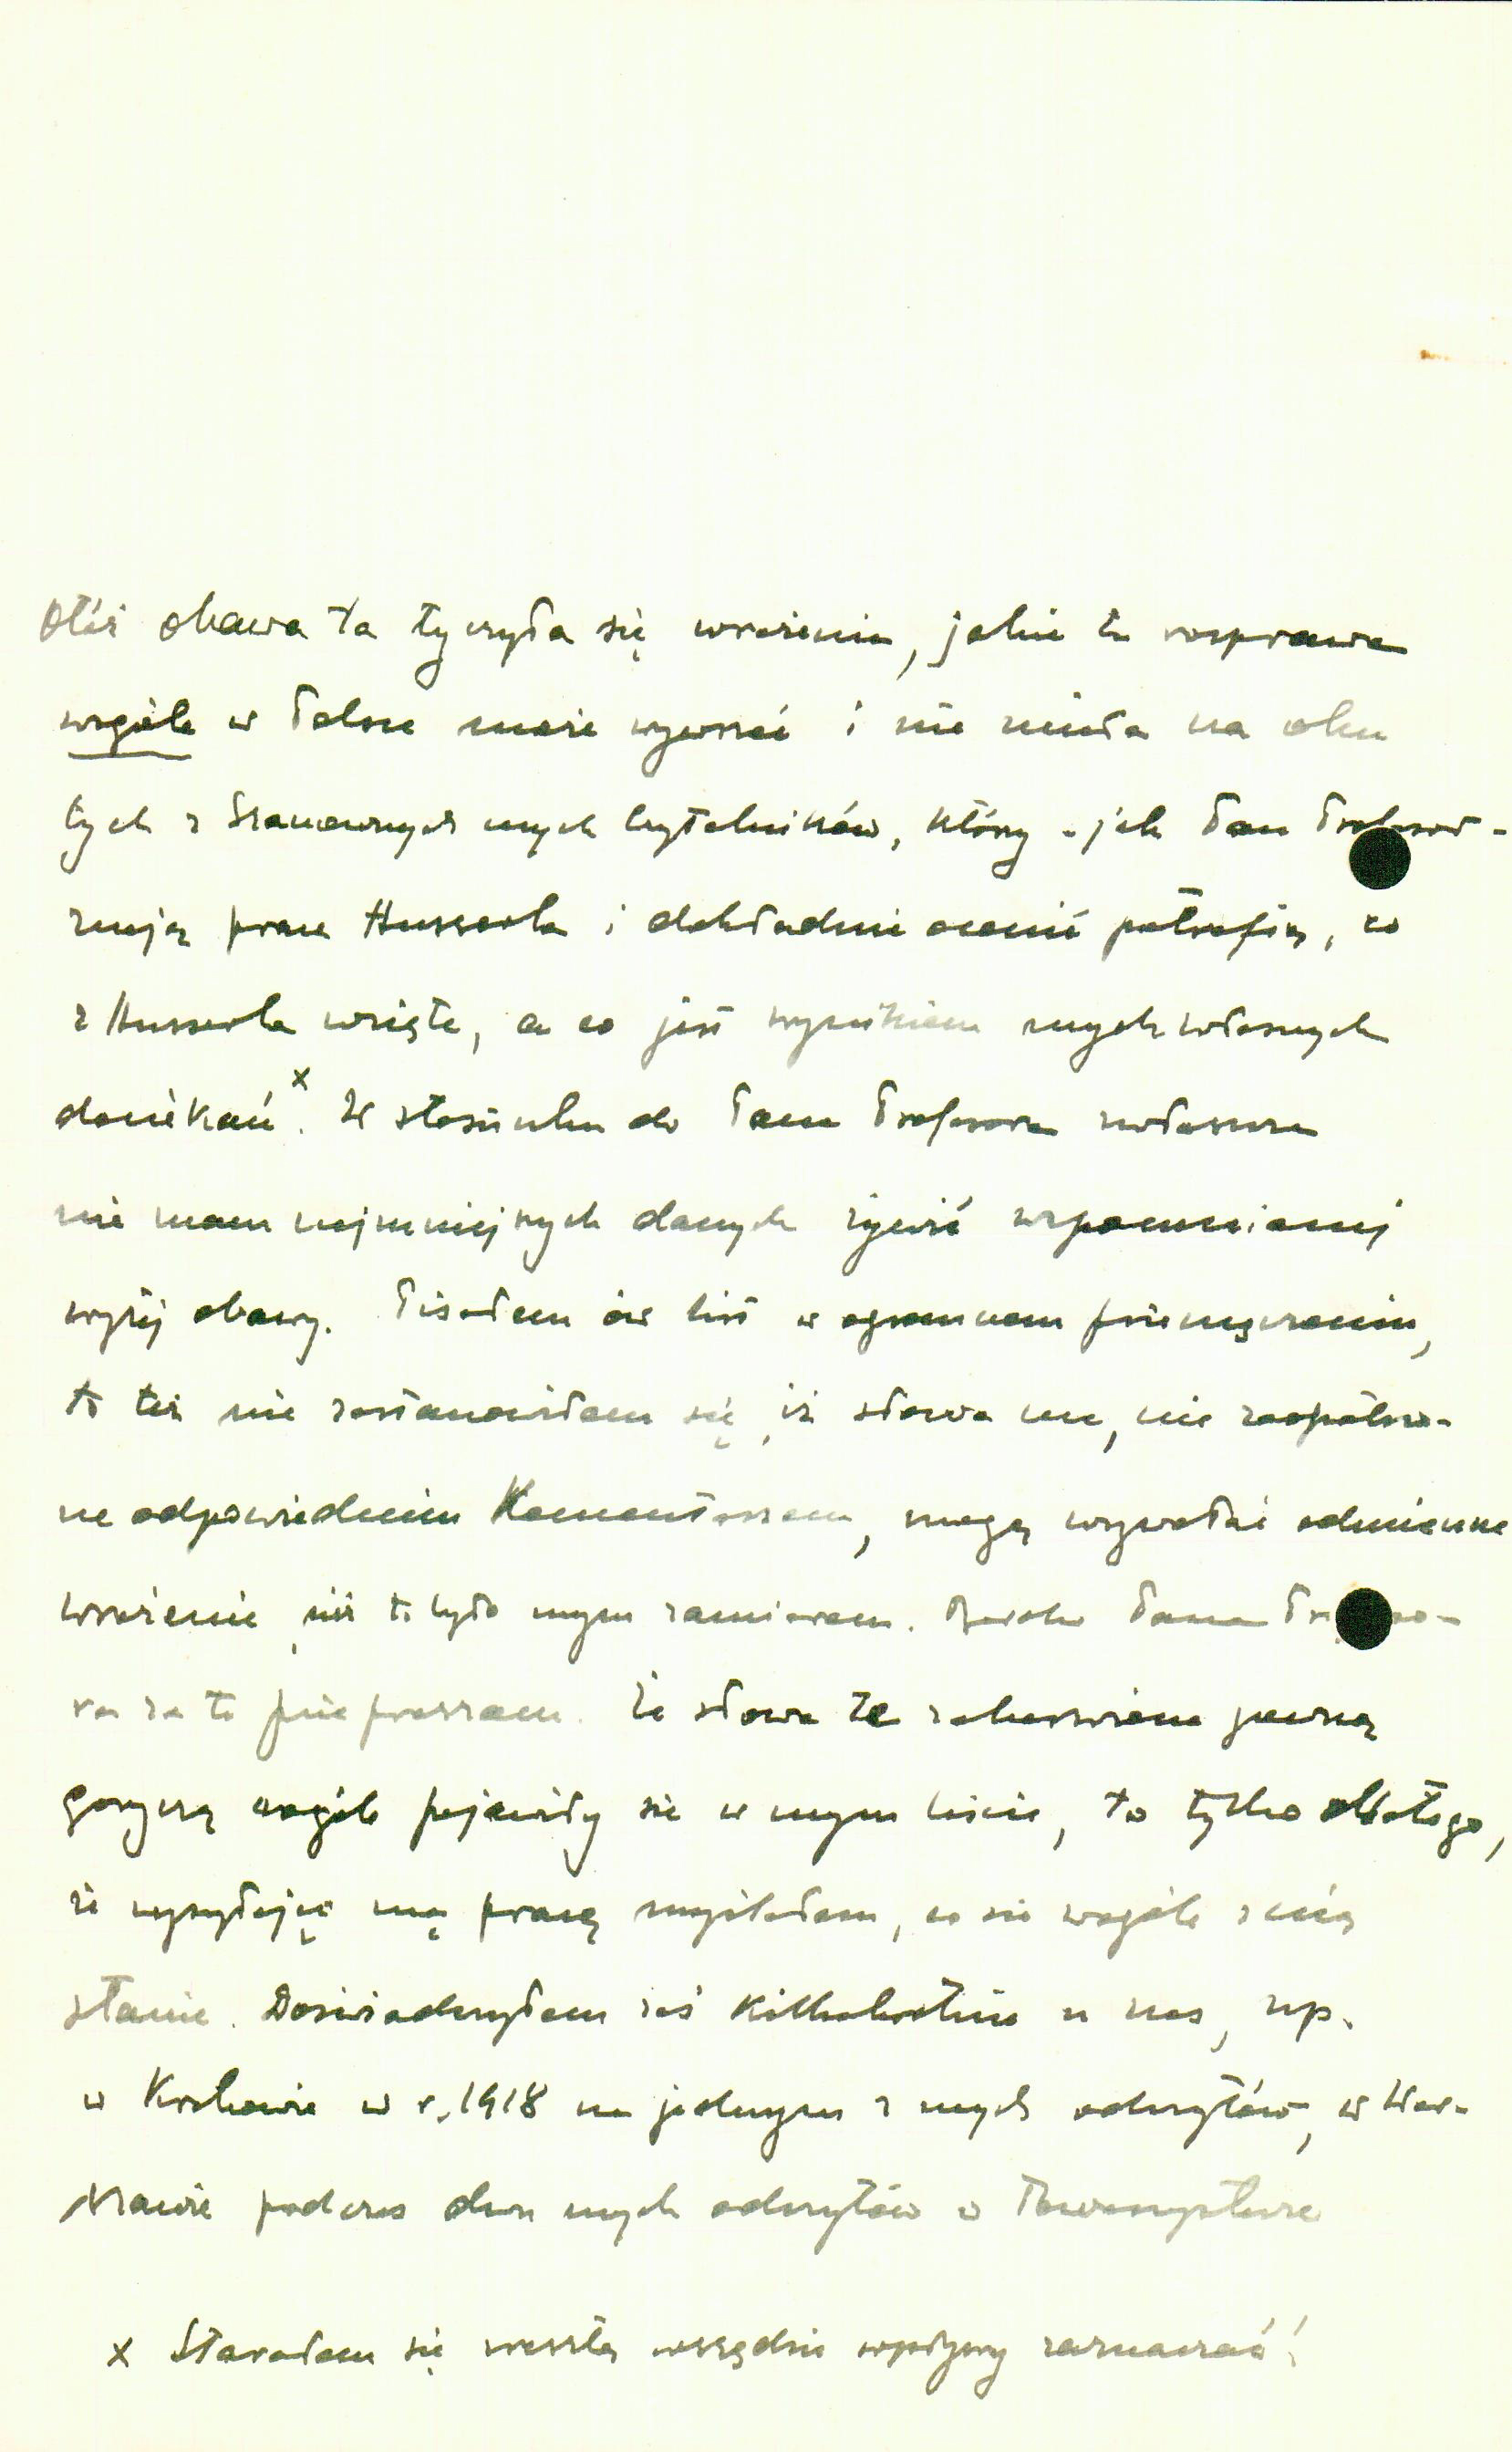 Otóż obawa ta tyczyła się wrażenia, jakie ta rozprawa
wogóle w Polsce może wywrzeć i nie miała na oku
tych z Szanownych mych Czytelników, którzy - jak Pan Profesor -
znają prace Husserla i dokładnie ocenić potrafią, co
z Husserla wzięte, a co jest wynikiem mych własnych
dociekań x. W stosunku do Pana Profesora zwłaszcza
nie mam najmniejszych danych żywić wspomnianej
wyżej obawy. Pisałem ów list w ogromnem przemęczeniu,
to też nie zastanowiłem się, iż słowa me, nie zaopatrzo-
ne odpowiednim Komentarzem, mogą wywołać odmienne
wrażenie, niż to było mym zamiarem. Bardzo Pana Profeso-
ra za to przepraszam. Że słowa te zabarwione pewną
goryczą wogóle pojawiły się w mym liście, to tylko dlatego,
że wysyłając mą pracę myślałem, co się wogóle z nią
stanie. Doświadczyłem zaś kilkakrotnie u nas, np.
w Krakowie w r. 1918 na jednym z mych odczytów, w War-
szawie podczas dwu mych odczytów w Towarzystwie
x Starałem się zresztą wszędzie wpływy zaznaczać!